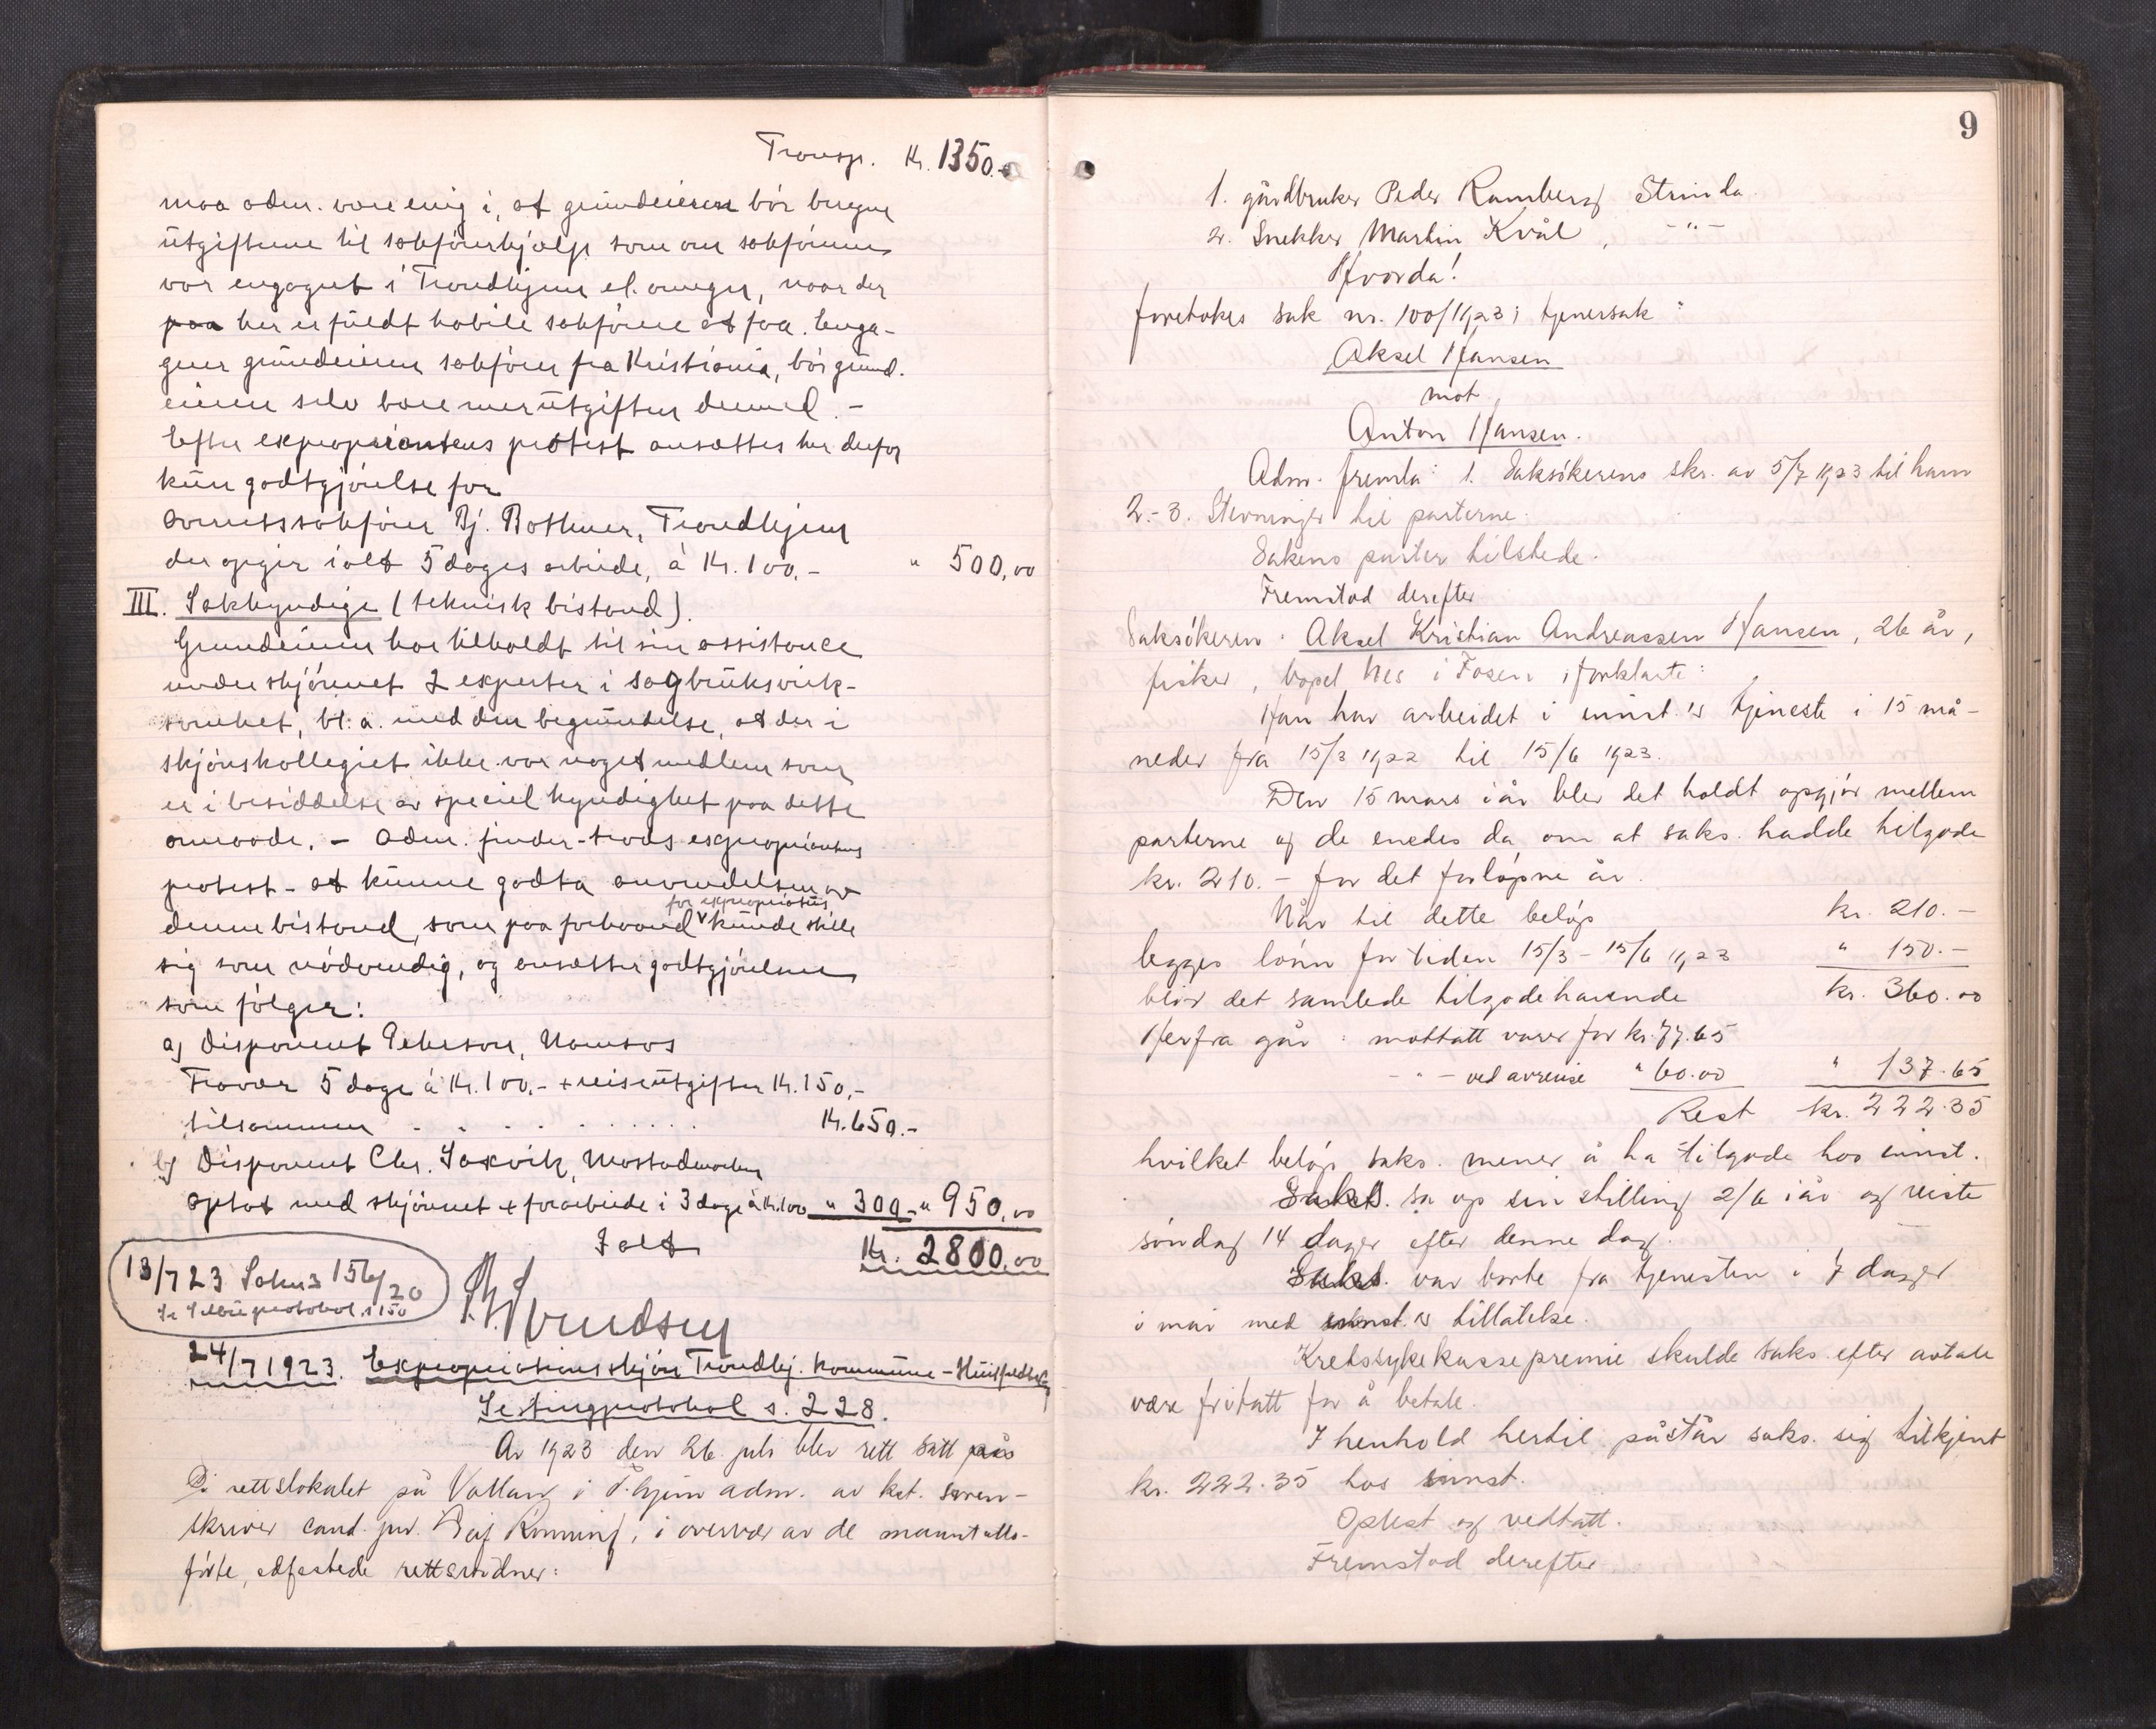 Transp. Kr. 1350.-
maa adm. være enig i, at grundeieren bør beregne
utgifterne til sakförerhjælp som om sakföreren
var engagert i Trondhjem el. omegn, naar der
paa her er fuldt habile sakförere at faa. Enga-
gerer grundeieren sakförer fra Kristiania, bør grund-
eieren selv bære merutgiften dermed. -
Efter expropriantens protest ansættes her derfor
kun godtgjörelse for
overretssakförer Bj. Rothmer, Trondhjem
der opgir ialt 5 dages arbeide, à Kr. 100.- " 500,00
III. Sakkyndige (teknisk bistand).
Grundeieren har tilholdt til sin assistance
under skjönnet 2 experter i sagbruksvirk-
somhet, bl. a. med den begrundelse, at der i
skjönskollegiet ikke var noget medlem som
er i besiddelse av speciel kyndighet paa dette
omraade. - Adm. finder - trods expropriantens
protest - at kunne godta anvendelsen av
for expropriatus
denne bistand, som paa forhaand kunde stille
sig som nödvendig, og ansætter godtgjörelsen
som følger:
a) Disponent Peterson, Namsos
Fravær 5 dage à Kr. 100.- + reiseutgifter Kr. 150,-
tilsammen . . . . . . . . Kr. 650.-
b) Disponent Chr. Saxvik, Mostadmarken
optat med skjönnet + forarbeide i 3 dage à Kr. 100 " 300.- " 950,00
Ialt Kr. 2800,00
13/7 23 Sak nr 156/20
Se Selbu protokol s. 150
24/7 1923. Expropriationsskjön Trondhj. kommune - Huitfeldt &
Se tingprotokol s. 228.
År 1923 den 26. juli blev rett satt på
i rettslokalet på Vollan i T.hjem adm. av kst. soren-
skriver cand. jur. Ronning, i overvær av de manntalls-
förte, edfæstede rettsvidner:
9
1. gårdbruker Peder Ramberg Strinda
2. Snekker Martin Kvål, - " -
Hvorda!
foretokes sak nr. 100/1923; tjenersak:
Aksel Hansen
mot
Anton Hansen.
Adm. fremla: 1. Saksökerens skr. av 5/7 1923 til ham
2.-3. Stevninger til parterne.
Sakens parter tilstede.
Fremstod derefter
Saksökeren: Aksel Kristian Andreassen Hansen, 26 år,
fisker, bopel Nes i Fosen; forklarte:
Han har arbeidet i innst.'s tjeneste i 15 må-
neder fra 15/3 1922 til 15/6 1923.
Den 15 mars iår blev det holdt opgjör mellem
parterne og de enedes da om at saks. hadde tilgode
kr. 210.- for det forløpne år.
Når til dette beløp kr. 210.-
legges lönn for tiden 15/3 - 15/6 1923 " 150.-
blir det samlede tilgodehavende kr. 360.00
Herfra går: mottatt varer for kr. 77.65
- " - ved avreise " 60.00 " 137.65
Rest kr. 222.35
hvilket beløp saks. mener å ha tilgode hos innst.
Saks. sa op sin stilling 2/6 iår og reiste
söndag 14 dager efter denne dag.
Saks. var borte fra tjenesten i 7 dager
i mai med innst.'s tillatelse.
Kretssykekassepremie skulde saks. efter avtale
være fritatt for å betale.
I henhold hertil påstår saks. sig tilkjent
kr. 222.35 hos innst.
Oplest og vedtatt.
Fremstod derefter